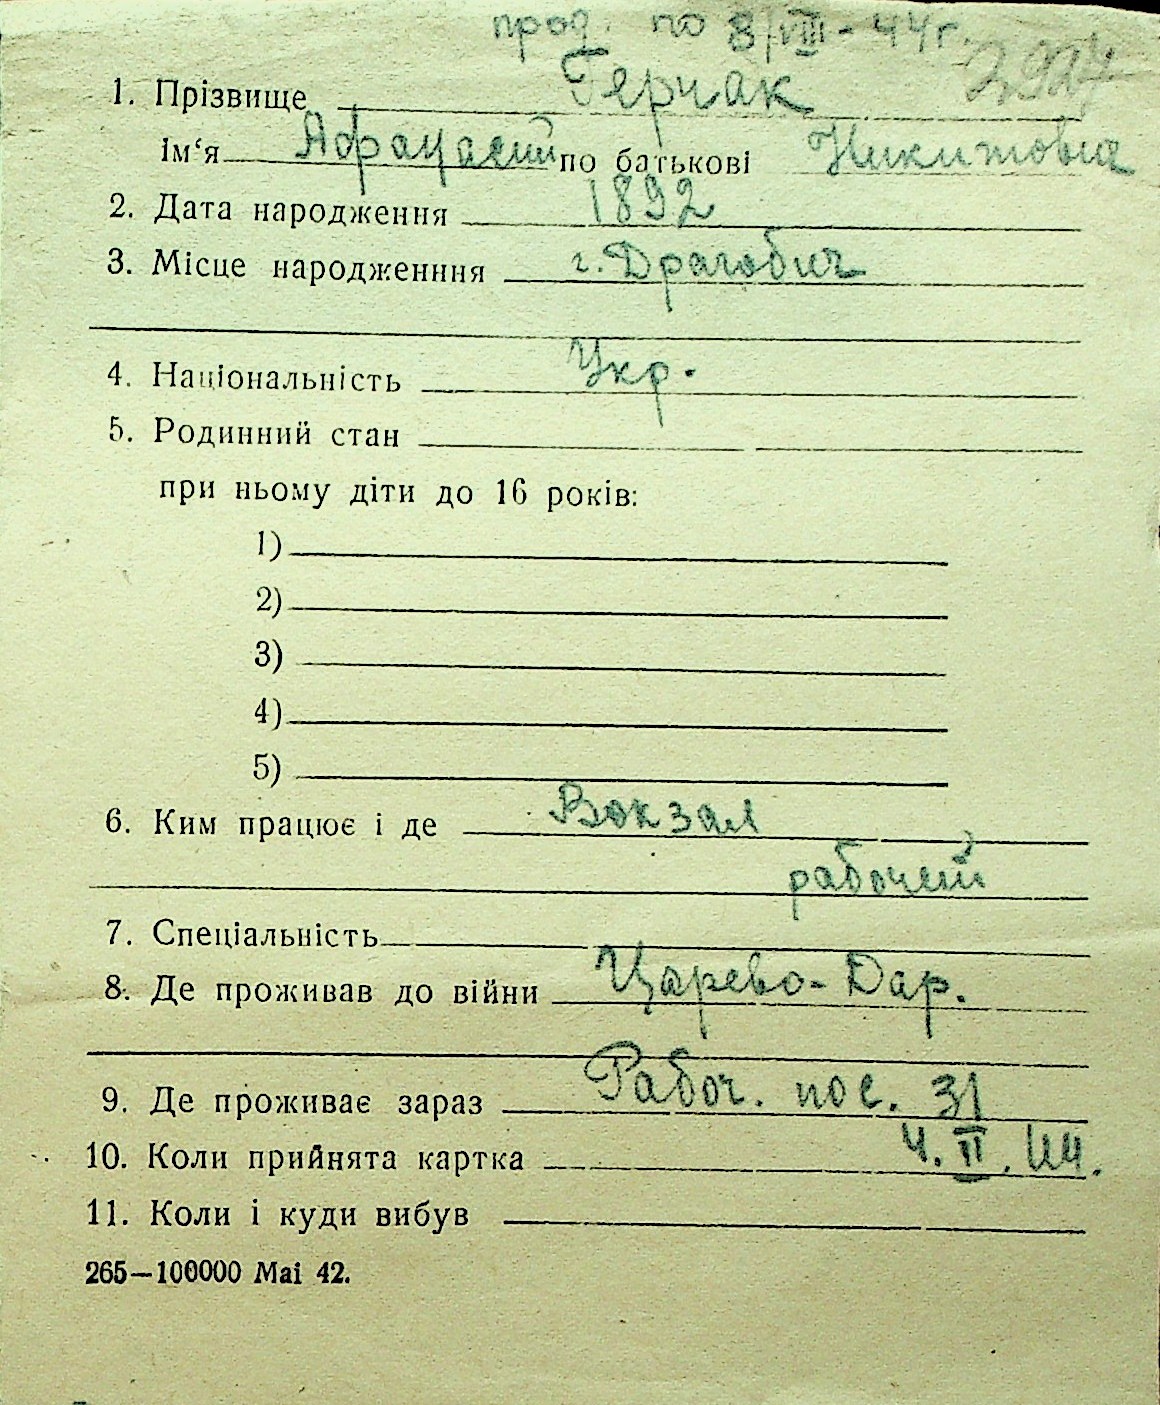 прод. по 8/VIII - 44 г.
2927
1. Прізвище Герчак
Ім‘я Афанасий по батькові Никитовна
2. Дата народження 1892
3. Місце народженння г. Драгобич
4. Національність Укр.
5. Родинний стан
при ньому діти до 16 років:
1)
2)
3)
4)
5)
6. Ким працює і де Вокзал
рабочий
7. Спеціальність
8. Де проживав до війни Царево-Дар.
9. Де проживає зараз Рабоч. пос. 31
10. Коли прийнята картка 4. II. 44.
11. Коли і куди вибув
265—100000 Mai 42.